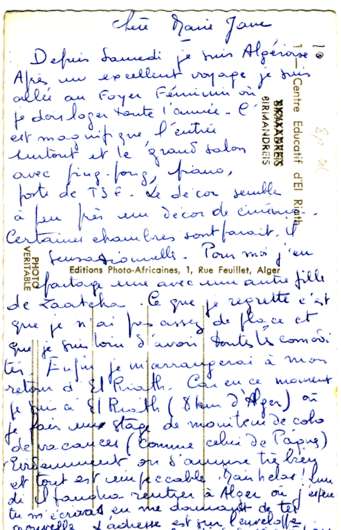 Chère Marie Jane
Depuis Samedi je suis Algéroise
Après un excellent voyage je suis
allée au Foyer Féminin où
je dois loger toute l'année. C'
est magnifique l'entrée
surtout et le grand salon
avec ping-pong, piano,
poste de TSF. Le décor semble
à peu près un décor de cinéma.
Certaines chambres sont paraît-il
sensationnelles. Pour moi j'en
partage une avec une autre fille
de Zaatcha. Ce que je regrette c'est
que je n'ai pas assez de place et
que je suis loin d'avoir toutes les commodi
tés. Enfin je m'arrangerai à mon
retour d'El Riath. Car en ce moment
je suis à El Riath (8km d'Alger) où
je fais un stage de moniteur de colo
de vacances (comme celui de Papou)
Evidemment on s'amuse très bien
et tout est impeccable. Mais hélas! lun
di il faudra rentrer à Alger où j'espère
tu m'écriras en me donnant de tes
nouvelles. L'adresse est sur l'enveloppe
1 - Centre Educatif d'El Riath
BIRMANDREIS
BIRMANDREIS
Editions Photo-Africaines, 1, Rue Feuillet, Alger
PHOTO
VERITABLE